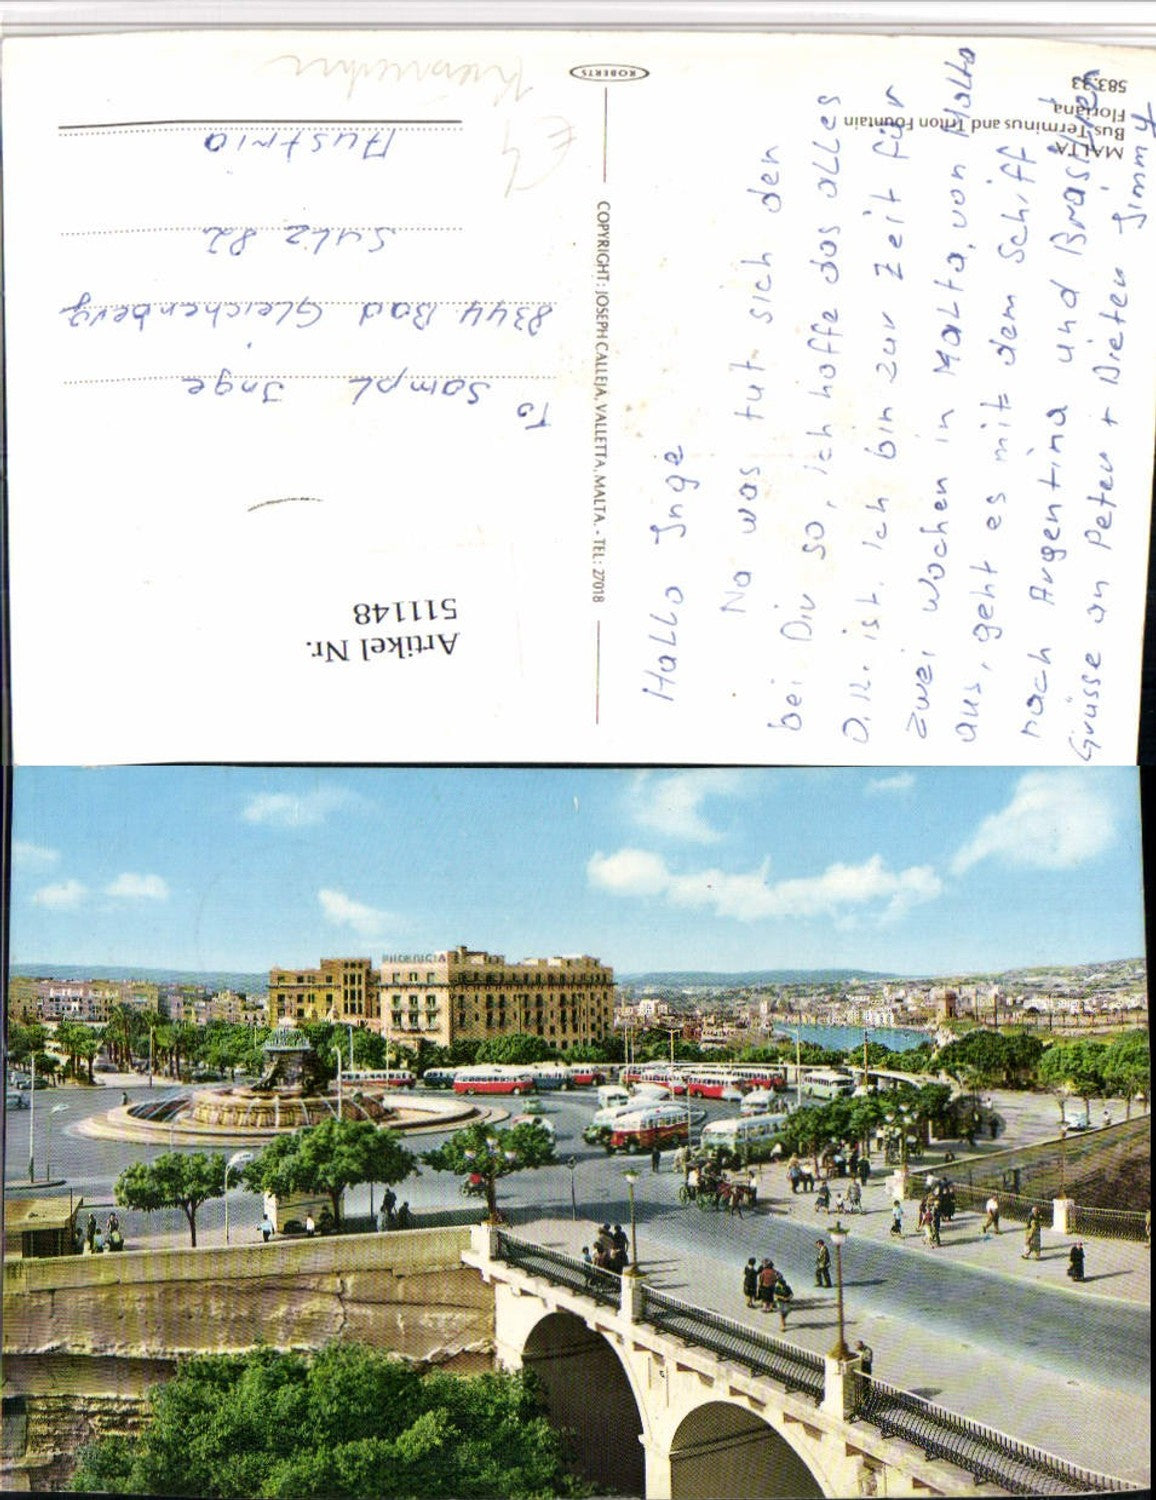 MALTA
Bus Terminus and Triton Fountain
Floriana
583.33
ROBERTS
COPYRIGHT: JOSEPH CALLEJA, VALLETTA, MALTA. - TEL: 27018
Hallo Inge
Na was tut sich den
bei Dir so, ich hoffe das alles
O.K. ist. Ich bin zur Zeit für
zwei Wochen in Malta, von Malta
aus, geht es mit dem Schiff
nach Argentina und Brasilien
Grüsse an Peter + Dieter Jimmy
Artikel Nr.
511148
To Sampl Inge
8344 Bad Gleichenberg
Sulz 82
Austria
PHOENICIA